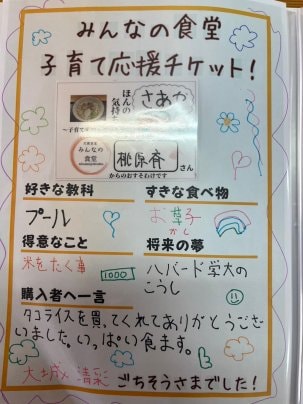 みんなの食堂
子育て応援チケット！
ほんの
気持ち
さあや
みんなの
食堂
桃原斉
さん
からのおすそわけです
好きな教科
すきな食べ物
プール
お草子
かし
得意なこと
将来の夢
米をたく事
1000
ハバード学大の
こうし
購入者へ一言
タコライスを買ってくれてありがとうござ
いました。いっぱい食ます。
大城 清彩
ごちそうさまでした！